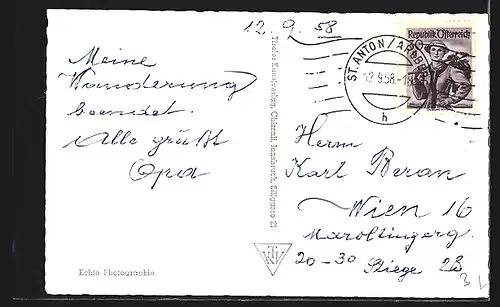 12.9.58
Meine
Wanderung
beendet.
Alle grüßt
Opa
Echte Photographie
Tiroler Kunstverlag, Chizzali, Innsbruck, Sillgasse 21
Republik Österreich
ST. ANTON / ARLBERG
12.9.58.-18
h
Herrn
Karl Beran
Wien 16
Maroltingerg.
20-30 Stiege 23